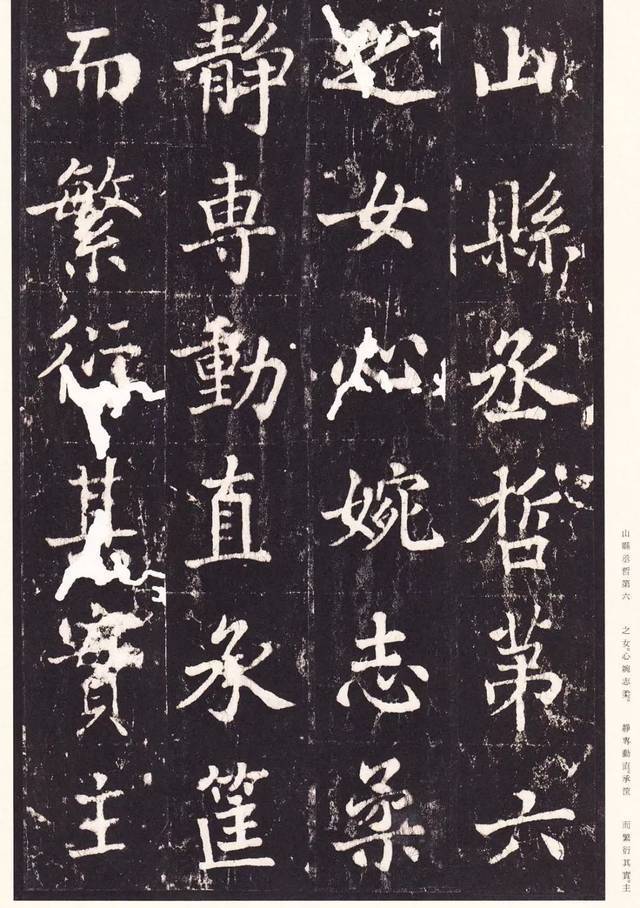 山縣丞哲第六
之女心婉志柔
靜専動直承筐
而繁衍其實主
山縣丞哲第六　之女。心婉志柔。　靜専動直。承筐　而繁衍其實。主